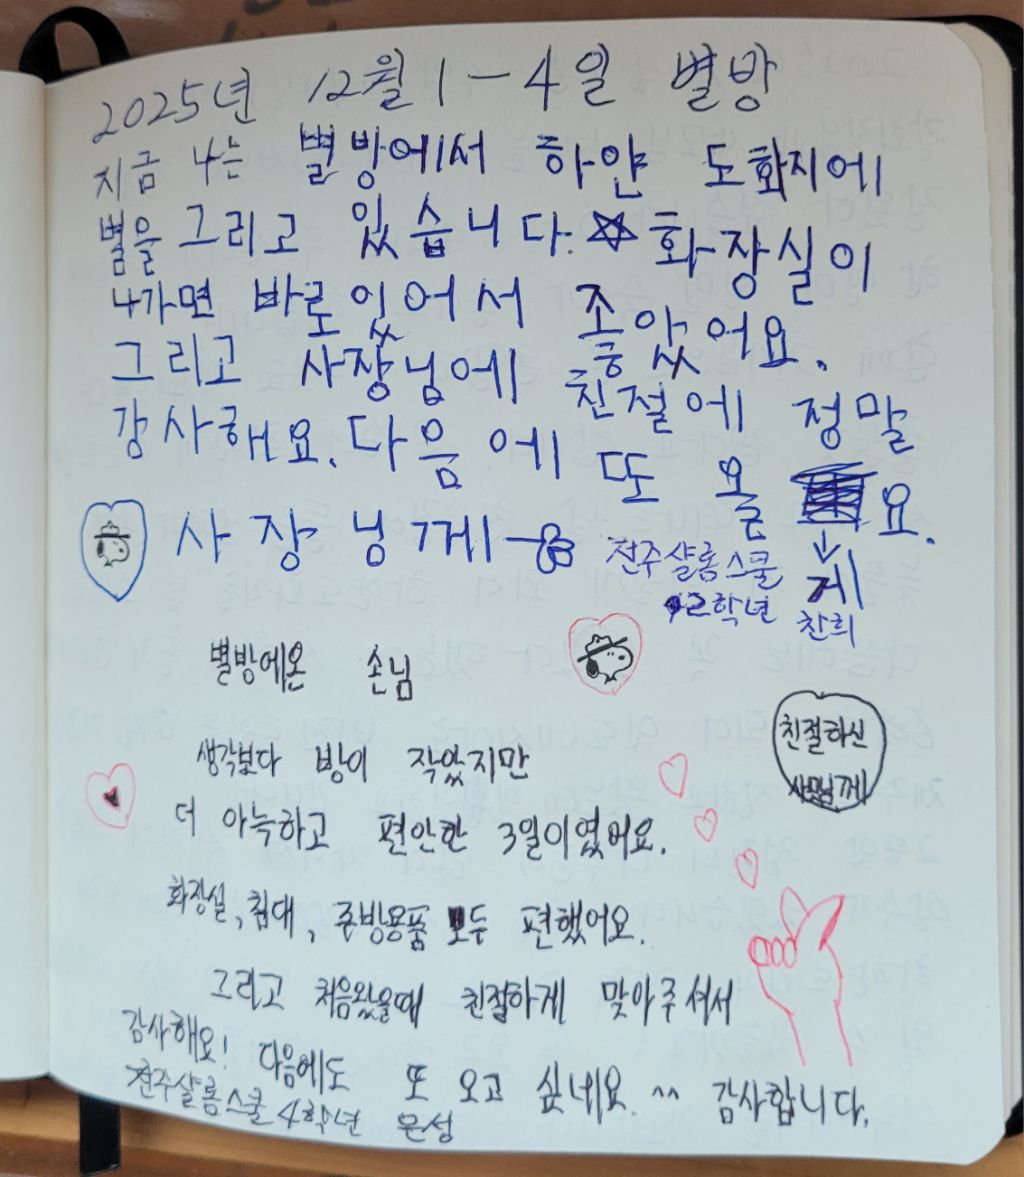 2025년 12월 1-4일 별방
지금 나는 별방에서 하얀 도화지에
별을 그리고 있습니다. 화장실이
나가면 바로있어서 좋았어요.
그리고 사장님에 친절에 정말
감사해요. 다음에 또 올 요.
게
사장님께
전주샬롬스쿨
2학년 찬희
별방에온 손님
생각보다 방이 작았지만
더 아늑하고 편안한 3일이였어요.
친절하신
께
화장실, 침대, 주방용품 모두 편했어요.
그리고 처음왔을때 친절하게 맞아주셔서
감사해요! 다음에도 또 오고 싶네요. ^^ 감사합니다.
전주샬롬스쿨 4학년 은성